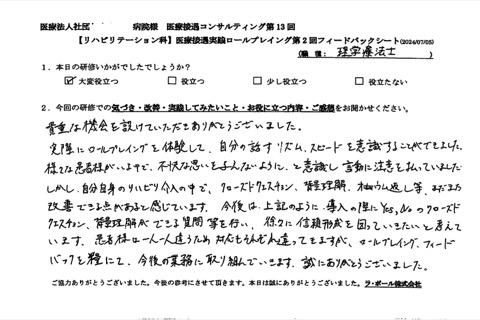 医療法人社団 病院様 医療接遇コンサルティング第13回
【リハビリテーション科】医療接遇実践ロールプレイング第2回フィードバックシート(2024/07/05)
(職 種: 理学療法士 )
1.本日の研修いかがでしたでしょうか?
☑大変役立つ □役立つ □少し役立つ □役立たない
2.今回の研修での気づき・改善・実践してみたいこと・お役に立つ内容・ご感想をお聞かせください。
貴重な機会を設けていただきありがとうございました。
実際にロールプレイングを体験して、自分の話すリズム、スピードを意識することができました。
様々な患者様がいる中で、不快な思いを与えないように、と意識し言動に注意を払っていました
しかし、自分自身のリハビリ介入の中で、クローズドクエスチョン、背景理解、オウム返し等、まだまだ
改善できる点があると感じています。今後は、上記のように、導入の際にYes,Noのクローズド
クエスチョン、背景理解ができる質問等を行い、徐々に信頼形成を図っていきたいと考えて
います。患者様は一人一人違うため対応もそれぞれ違ってきますが、ロールプレイング、フィード
バックを糧にて、今後の業務に取り組んでいきます。誠にありがとうございました。
ご協力ありがとうございました。今後の参考にさせて頂きます。本日は誠にありがとうございました。ラ・ポール株式会社